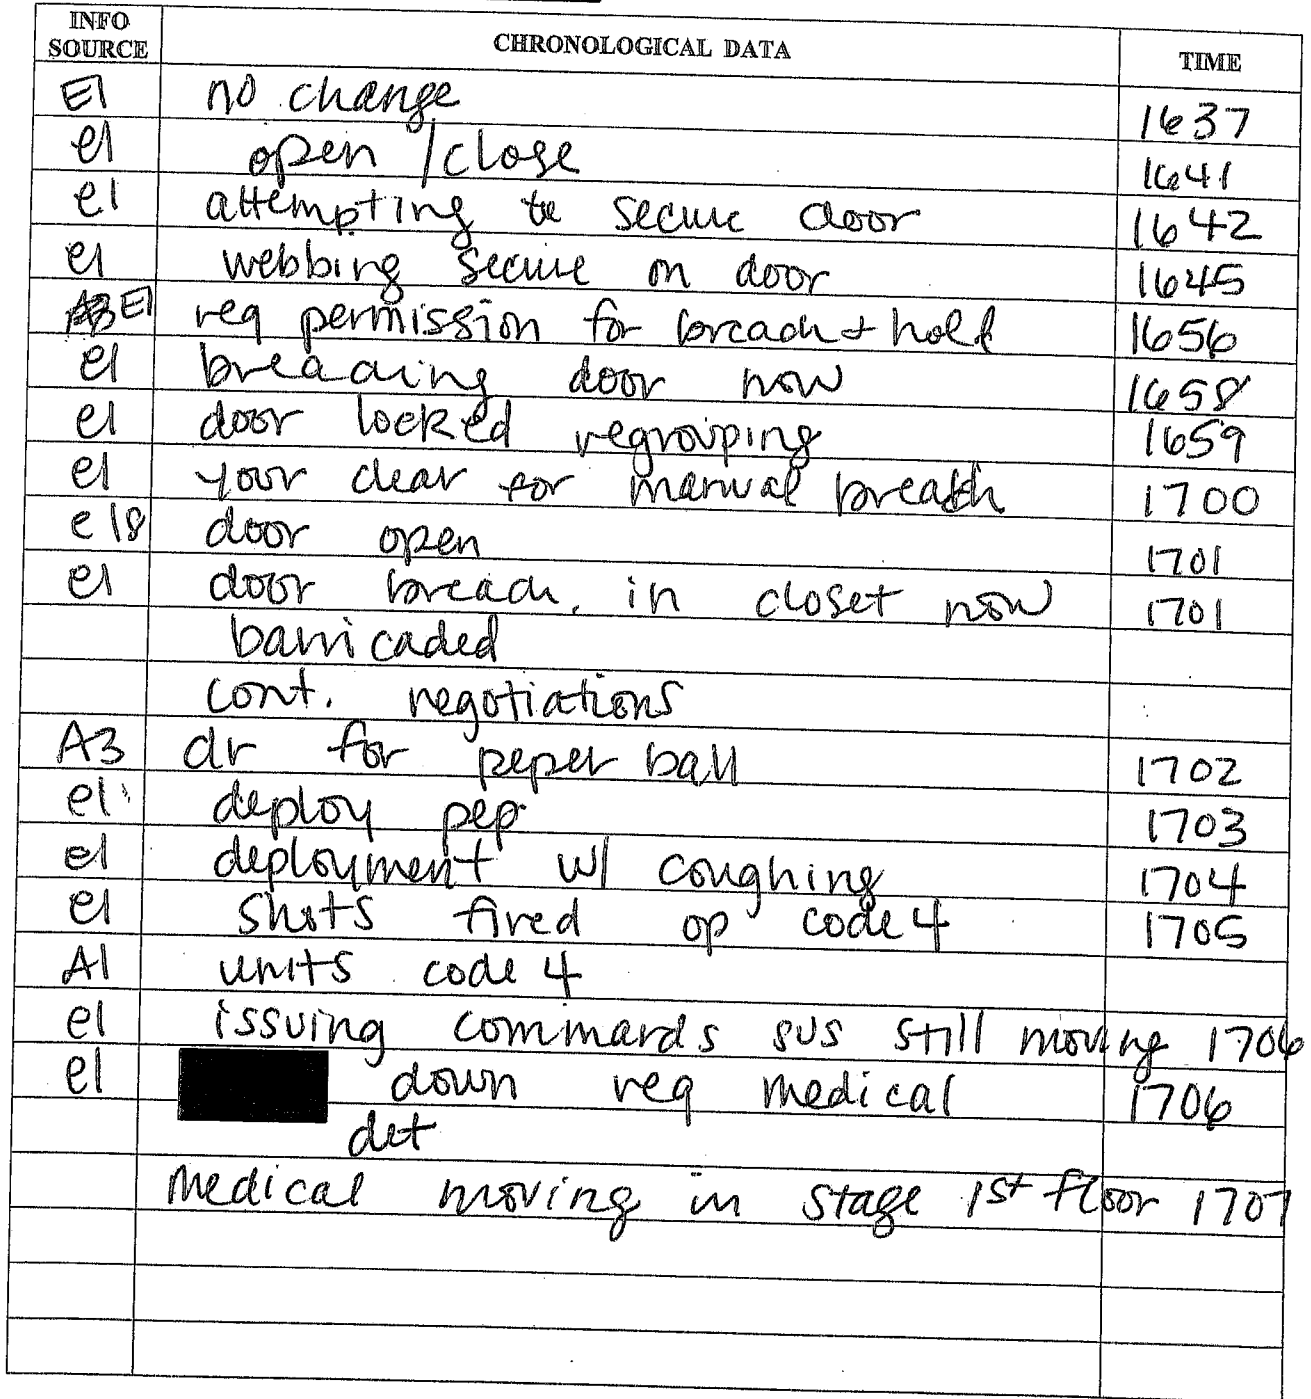 INFO SOURCE CHRONOLOGICAL DATA TIME
E1 no change 1637
e1 open / close 1641
e1 attempting to secure door 1642
e1 webbing secure on door 1645
E1 req permission for breach + hold 1656
e1 breaching door now 1658
e1 door locked regrouping 1659
e1 your clear for manual breach 1700
e18 door open 1701
e1 door breach, in closet now 1701
barricaded
cont. negotiations
A3 clr for peper ball 1702
e1 deploy pep 1703
e1 deployment w/ coughing 1704
e1 shots fired op code 4 1705
A1 units code 4
e1 issuing commards sus still moving 1706
e1 down req medical 1706
det
medical moving in stage 1st floor 1707